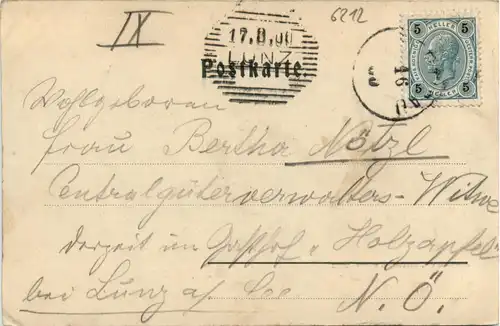 IX
6212
17.8.00
LUNZ
Postkarte.
5 HELLER 5
5 HELLER 5
16
00
Wohlgeboren
Frau Bertha Nötzl
Centralgüterverwalters-Witwe
derzeit im Gasthof "Holzapfel
bei Lunz a/ See
N. Ö.